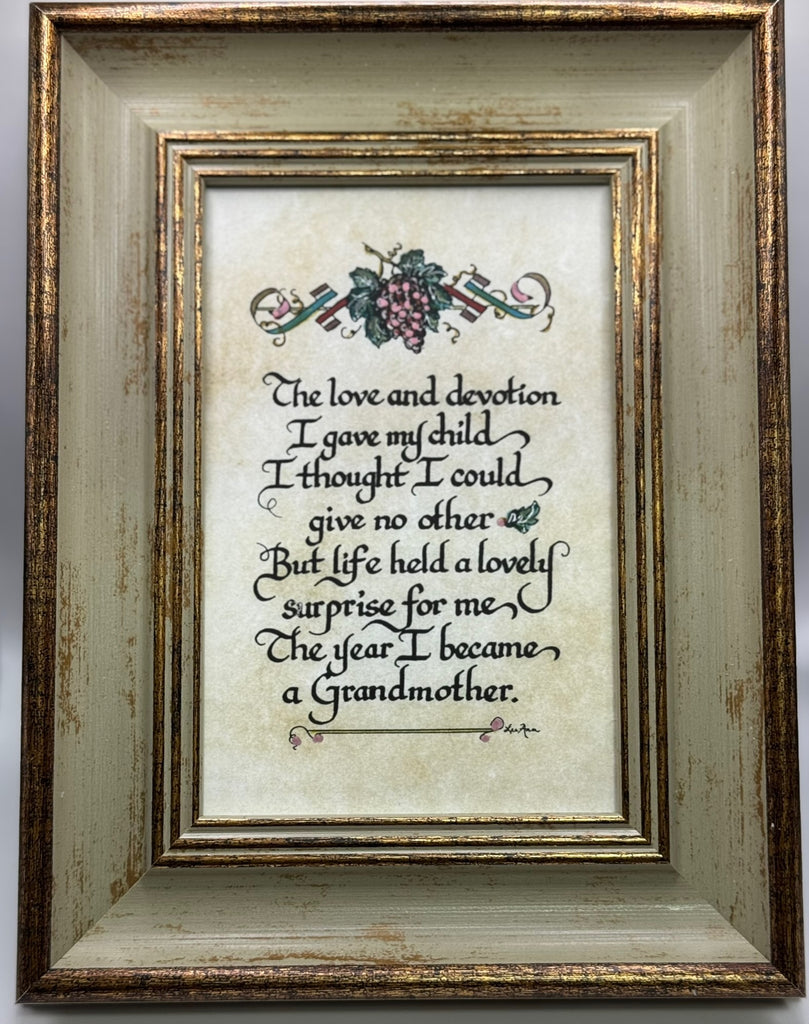 The love and devotion
I gave my child
I thought I could
give no other
But life held a lovely
surprise for me
The year I became
a Grandmother.
Lee Ann